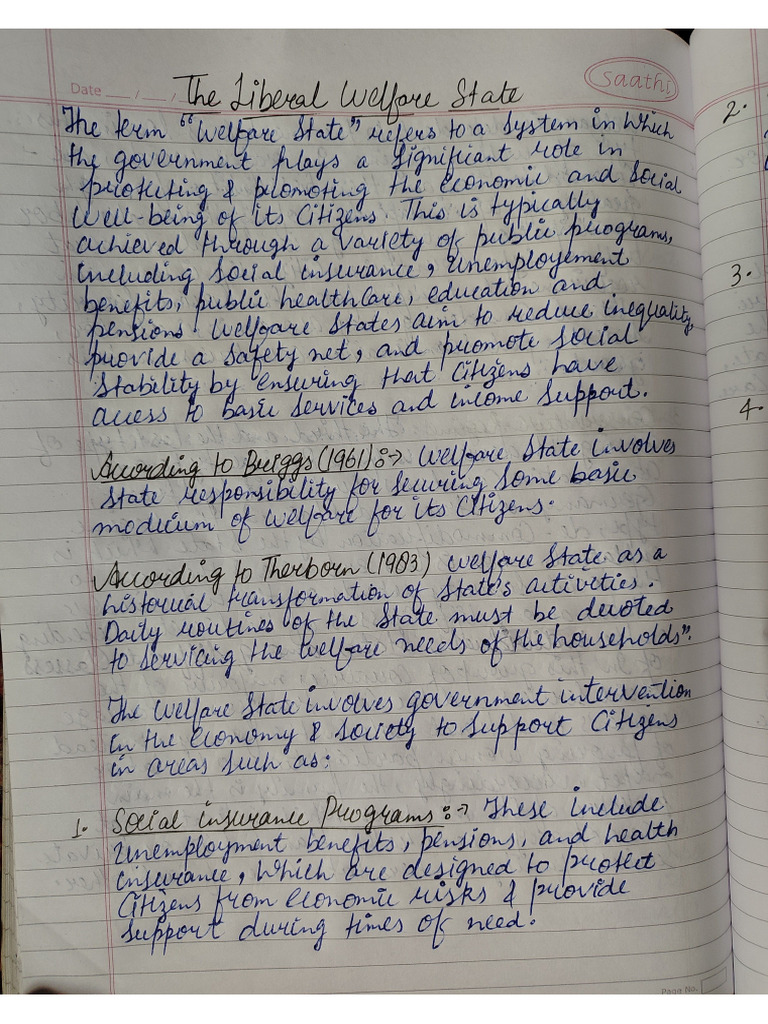 Date __/__/__
The Liberal Welfare State
Saathi
The term "Welfare State" refers to a System in which
the government plays a Significant role in
protecting & promoting the economic and social
well-being of its Citizens. This is typically
achieved through a variety of public programs,
including social insurance, unemployement
benefits, public healthcare, education and
pensions. Welfare States aim to reduce inequality,
provide a safety net, and promote social
stability by ensuring that Citizens have
access to basic services and income support.
According to Briggs (1961):→ Welfare State involves
State responsibility for securing some basic
modicum of welfare for its Citizens.
According to Therborn (1983) Welfare State as a
historical transformation of State's activities.
Daily routines of the State must be devoted
to servicing the welfare needs of the households".
The Welfare State involves government intervention
in the economy & society to support Citizens
in areas such as:
1. Social insurance Programs:→ These include
unemployment benefits, pensions, and health
insurance, which are designed to protect
Citizens from economic risks & provide
support during times of need.
Page No.
2.
3.
4.